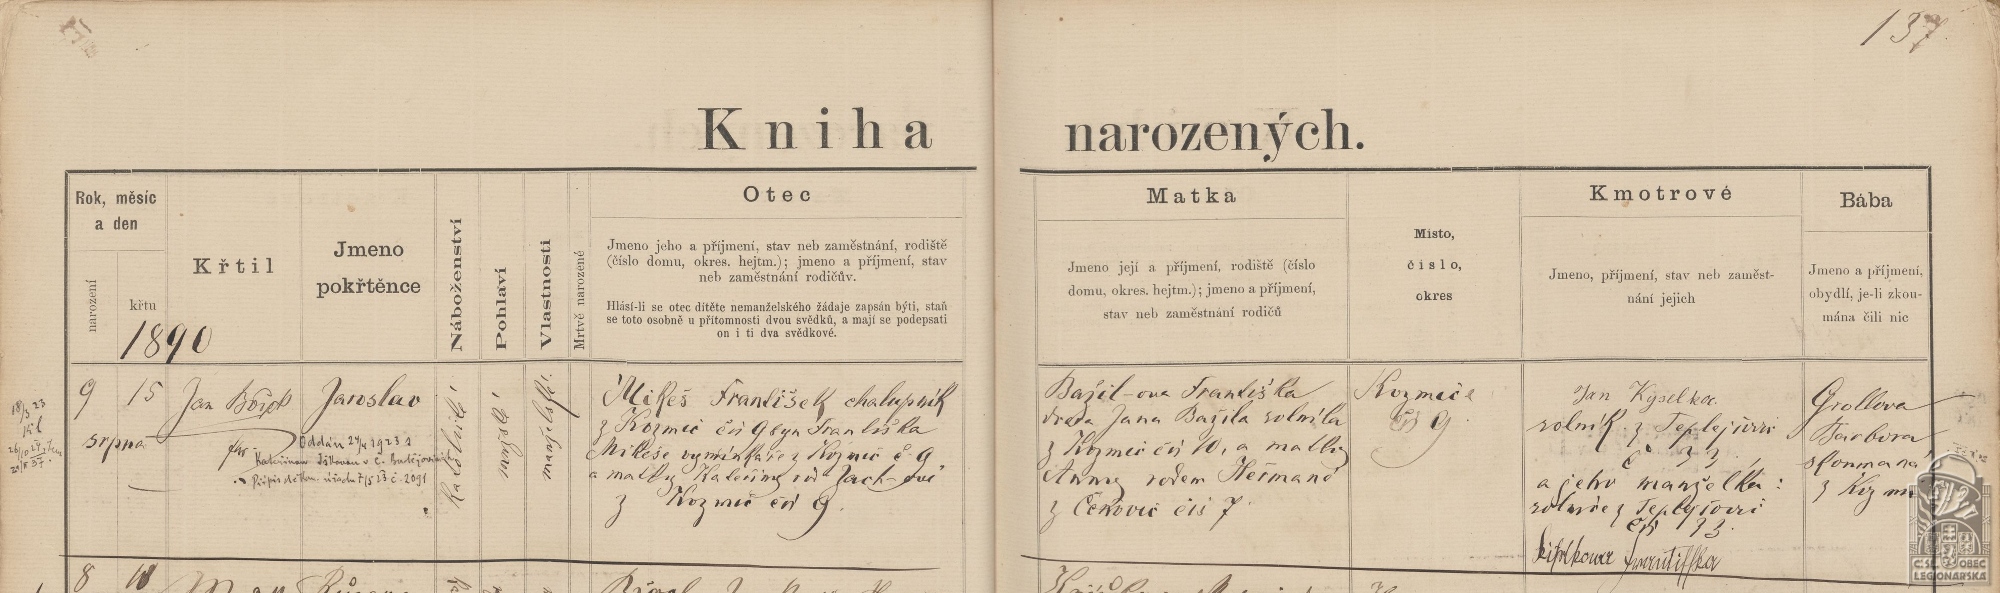 137
Kniha narozených.
Rok, měsíc
a den
narození
křtu
1890
Křtil
Jmeno
pokřtěnce
Náboženství
Pohlaví
Vlastnosti
Mrtvě narozené
Otec
Jmeno jeho a příjmení, stav neb zaměstnání, rodiště
(číslo domu, okres. hejtm.); jmeno a příjmení, stav
neb zaměstnání rodičův.
Hlásí-li se otec dítěte nemanželského žádaje zapsán býti, staň
se toto osobně u přítomnosti dvou svědků, a mají se podepsati
on i ti dva svědkové.
Matka
Jmeno její a příjmení, rodiště (číslo
domu, okres. hejtm.); jmeno a příjmení,
stav neb zaměstnání rodičů
Místo,
číslo,
okres
Kmotrové
Jmeno, příjmení, stav neb zaměst-
nání jejich
Bába
Jmeno a příjmení,
obydlí, je-li zkou-
mána čili nic
18/3 23
9 15
srpna
Jan
Jaroslav
Oddán 24/4 1923 s
Kateřinou v Č. Budějovicích
katolické
mužské
manželské
Mikeš František chalupník
z Kozmic čís 9 syn Františka
Mikeše výminkáře z Kozmic č. 9
a matky Kateřiny rod.
z Kozmic čís 9.
Bažil-ova Františka
dcera Jana Bažila rolníka
z Kozmic čís 10, a matky
Anny rodem Heřmanő
z Čeňovic čís 7
Kozmice
čís 9
Jan Kyselka
rolník z Teplýšovic
č. 33
a jeho manželka:
rolnice z Teplýšovic
čís 33.
Františka
Grollova
Barbora
zkoumaná
z
8
Růžena
ČS. OBEC
LEGIONÁŘSKÁ